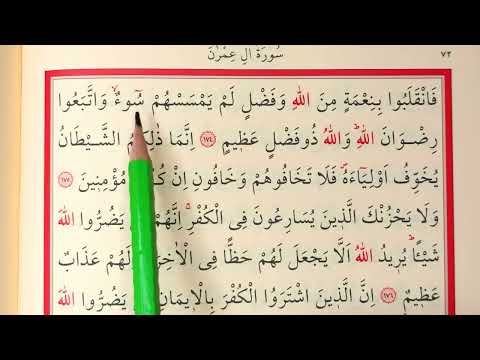 سُورَةُ اٰلِ عِمْرٰنَ ٧٢
فَانْقَلَبُوا بِنِعْمَةٍ مِنَ اللّٰهِ وَفَضْلٍ لَمْ يَمْسَسْهُمْ سُٓوءٌۙ وَاتَّبَعُوا
رِضْوَانَ اللّٰهِۜ وَاللّٰهُ ذُوفَضْلٍ عَظ۪يمٍ ﴿١٧٤﴾ اِنَّمَا ذٰلِكُمُ الشَّيْطَانُ
يُخَوِّفُ اَوْلِيَٓاءَهُۖ فَلَا تَخَافُوهُمْ وَخَافُونِ اِنْ مُؤْمِن۪ينَ ﴿١٧٥﴾
وَلَا يَحْزُنْكَ الَّذ۪ينَ يُسَارِعُونَ فِي الْكُفْرِۚ اِنَّهُمْ يَضُرُّوا اللّٰهَ
شَيْـًٔاۜ يُر۪يدُ اللّٰهُ اَلَّا يَجْعَلَ لَهُمْ حَظًّا فِي وَلَهُمْ عَذَابٌ
عَظ۪يمٌ ﴿١٧٦﴾ اِنَّ الَّذ۪ينَ اشْتَرَوُا الْكُفْرَ بِالْا۪يمَانِ يَضُرُّوا اللّٰهَ